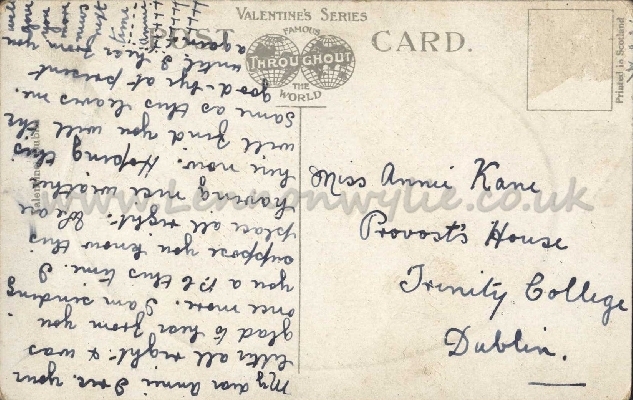 VALENTINE'S SERIES
POST CARD.
FAMOUS
THROUGHOUT
THE
WORLD
Printed in Scotland
Miss Annie Kane
Provost's House
Trinity College
Dublin.
My dear Annie I rec. your
letter all right. & was
glad to hear from you
once more. I am sending
you a P.C this time. I
suppose you know this
place all right. We are
having nice weather
here now. Hoping this
will find you will the
same as this leaves me.
good-bye at present
until I hear from you
again.
www.Lennonwylie.co.uk